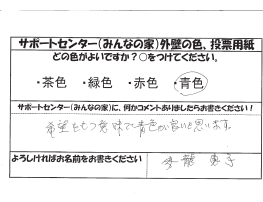 サポートセンター(みんなの家)外壁の色、投票用紙
どの色がよいですか?○をつけてください。
・茶色 ・緑色 ・赤色 ・青色
サポートセンター(みんなの家)に、何かコメントありましたらお書きください!
希望をもつ意味で青色が良いと思います。
よろしければお名前をお書きください